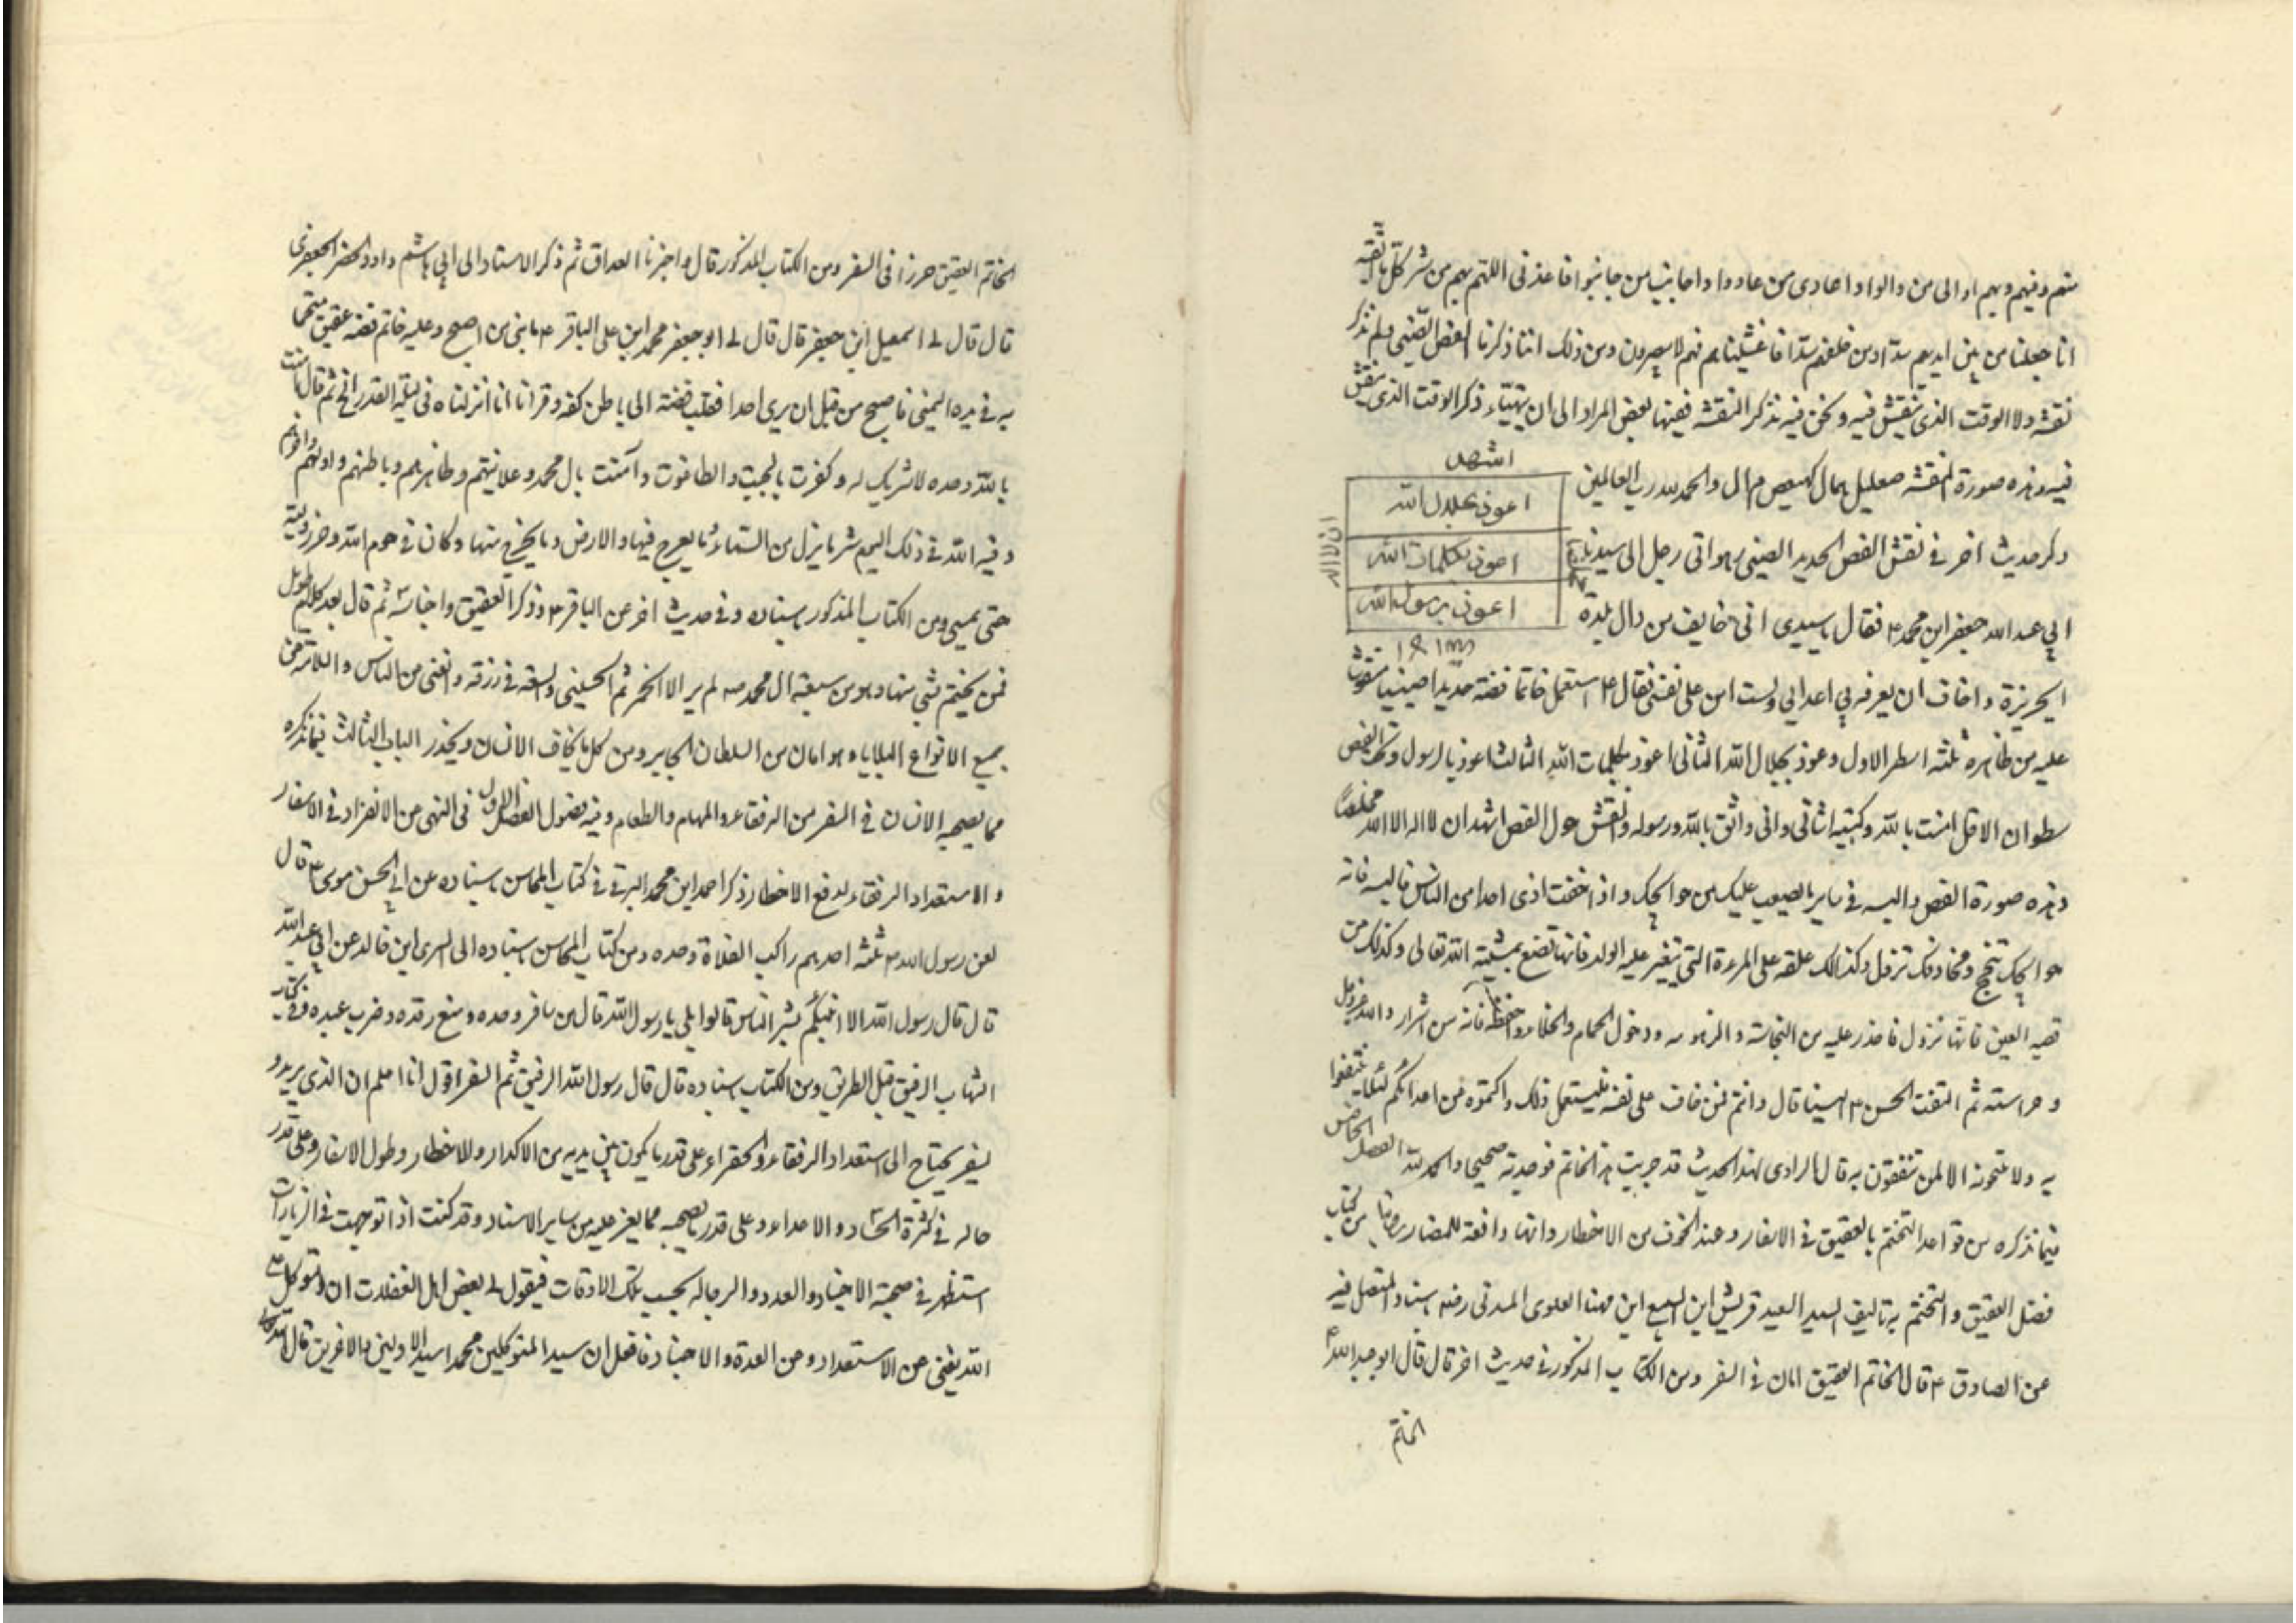 منهم وفيهم وبهم اوالى من والوا واعادى من عادوا واجانب من جانبوا فاعذنى اللهم بهم من شر كل ما اتقيه
انا جعلنا من بين ايديهم سدا ومن خلفهم سدا فاغشيناهم فهم لا يبصرون ومن ذلك اننا ذكرنا الفص الصينى ولم نذكر
نقشه ولا الوقت الذى ينقش فيه ونحن فيه نذكر النقشه فيها بعض المراد الى ان يتهيّاء ذكر الوقت الذى ينقش
فيه وهذه صورة النقشه صعليل بمال كهيعص م ال والحمد لله رب العالمين
اشهد
اعوذ بجلال الله
اعوذ بكلمات الله
اعوذ برسول الله
ان لا اله
ذكر حديث اخر فى نقش الفص الحديد الصينى هو اتى رجل الى سيدنا
ابي عبد الله جعفر ابن محمد ع فقال يا سيدى انى خايف من وال بلدة
الجزيرة واخاف ان يعرفه بي اعدايى ولست امن على نفسى فقال ع استعمل خاتما فصّه حديدا صينيا منقوشا
عليه من ظاهره ثلثه اسطر الاول وعوذ بجلال الله الثانى اعوذ بكلمات الله الثالث اعوذ بالرسول وتحت الفص
سطران الاول امنت بالله وكتبه الثانى وانى واثق بالله ورسوله وانقش حول الفص اشهد ان لا اله الا الله مخلصا
وهذه صورة الفص والبسه فى ساير ما يصعب عليك من حوايجك واذا خفت اذى احد من الناس فالبسه فانه
حوايجك تنجح ومخاوفك تزول وكذالك علقه على المرءة التى يتعسر عليها الولد فانها تضع بمشية الله تعالى وكذلك من
تصيبه العين فانها تزول فاحذر عليه من النجاسة والزهومه ودخول الحمام والخلاء واحفظه فانه من اسرار الله عز وجل
وحراسته ثم التفت الحسن ع الينا قال وانتم فمن خاف على نفسه فليستعمل ذلك واكتموه من اعدائكم لئلا ينتفعوا
به ولا تبيحونه الا لمن تثقون به قال الراوى لهذا الحديث قد جربت هذا الخاتم فوجدته صحيحا والحمد لله الفصل الخامس
فيما نذكره من قواعد التختم بالعقيق فى الاسفار وعند الخوف من الاخطار وانها دافعة للمضار روينا من كتاب
فضل العقيق والتختم به تاليف السيد السعيد قريش ابن السبيع ابن مهنا العلوى المدنى رضه باسناد المتصل فيه
عن الصادق ع قال الخاتم العقيق امان فى السفر ومن الكتاب المذكور فى حديث اخر قال قال ابو عبد الله ع
الخاتم
الخاتم العقيق حرزا فى السفر ومن الكتاب المذكور قال واخبرنا العداق ثم ذكر الاسناد الى ابي هاشم داود الجعفرى
قال قال لى اسمعيل ابن جعفر قال قال لى ابو جعفر محمد ابن على الباقر ع يا بنى من اصبح وعليه خاتم فصّه عقيق متختما
به فى يده اليمنى فاصبح من قبل ان يرى احدا فقلب فصّه الى باطن كفه وقرا انا انزلناه فى ليلة القدر الخ ثم قال امنت
بالله وحده لا شريك له وكفرت بالجبت والطاغوت وآمنت بال محمد وعلانيتهم وظاهرهم وباطنهم واولهم واخرهم
وقيه الله فى ذلك اليوم شر ما ينزل من السماء وما يعرج فيها والارض وما يخرج منها وكان فى حرم الله وحرز وليه
حتى يمسى ومن الكتاب المذكور باسناده وفى حديث اخر عن الباقر ع وذكر العقيق واجناسه ثم قال بعد كلام طويل
فمن تختم بشى منها وهو من شيعة ال محمد صه لم ير الا الخير ثم الحسنى والسعة فى رزقه والغنى من الناس والسلامة من
جميع الانواع البلايا وهو امان من السلطان الجاير ومن كل ما يخاف الانسان ويحذر الباب الثالث فيما نذكره
مما يصحبه الانسان فى السفر من الرفقاء والمهام والطعام وفيه فصول الفصل الاول فى النهى من الانفراد فى الاسفار
والاستعداد الرفقاء لدفع الاخطار ذكر احمد ابن محمد البرقى فى كتاب المحاسن باسناده عن ابي الحسن موسى ع قال
لعن رسول الله ص ثلثه احدهم راكب الفلاة وحده ومن كتاب المحاسن باسناده الى السرى ابن خالد عن ابي عبد الله
قال قال رسول الله الا انبئكم بشر الناس قالوا بلى يا رسول الله قال من سافر وحده ومنع رفده وضرب عبده وفى كتاب
الشهاب الرفيق قبل الطريق ومن الكتاب باسناده قال قال رسول الله الرفيق ثم السفر اقول انا اعلم ان الذى يريد
لسفر يحتاج الى استعداد الرفقاء والخفراء على قدر ما يكون بين يديه من الاكدار والاخطار وطول الاسفار وعلى قدر
حاله فى كثرة الحساد والاعداء وعلى قدر ما يصحبه مما يعز عليه من ساير الاسناد وقد كنت اذا توجهت فى الزيارات
استظهر فى صحبة الاجناد والعدد والرجاله بحسب تلك الاوقات فيقول لى بعض اهل الغفلات ان التوكل على
الله يغنى عن الاستعداد وعن العدة والاجناد فاقول ان سيد المتوكلين محمد اسيد الاولين والاخرين قال الله له